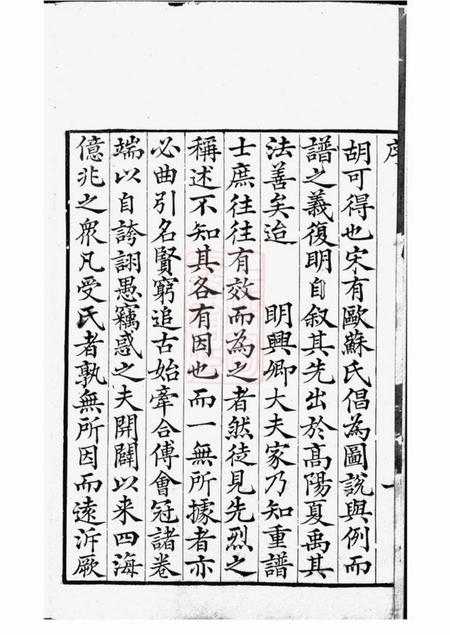 序
胡可得也宋有歐蘇氏倡為圖說與例而
譜之義復明自叙其先出於高陽夏禹其
法善矣迨　明興卿大夫家乃知重譜
士庶往往有效而為之者然徒見先烈之
稱述不知其各有因也而一無所據者亦
必曲引名賢窮追古始牽合傅會冠諸卷
端以自誇詡愚竊惑之夫開闢以来四海
億兆之衆凡受氏者孰無所因而遠泝厥